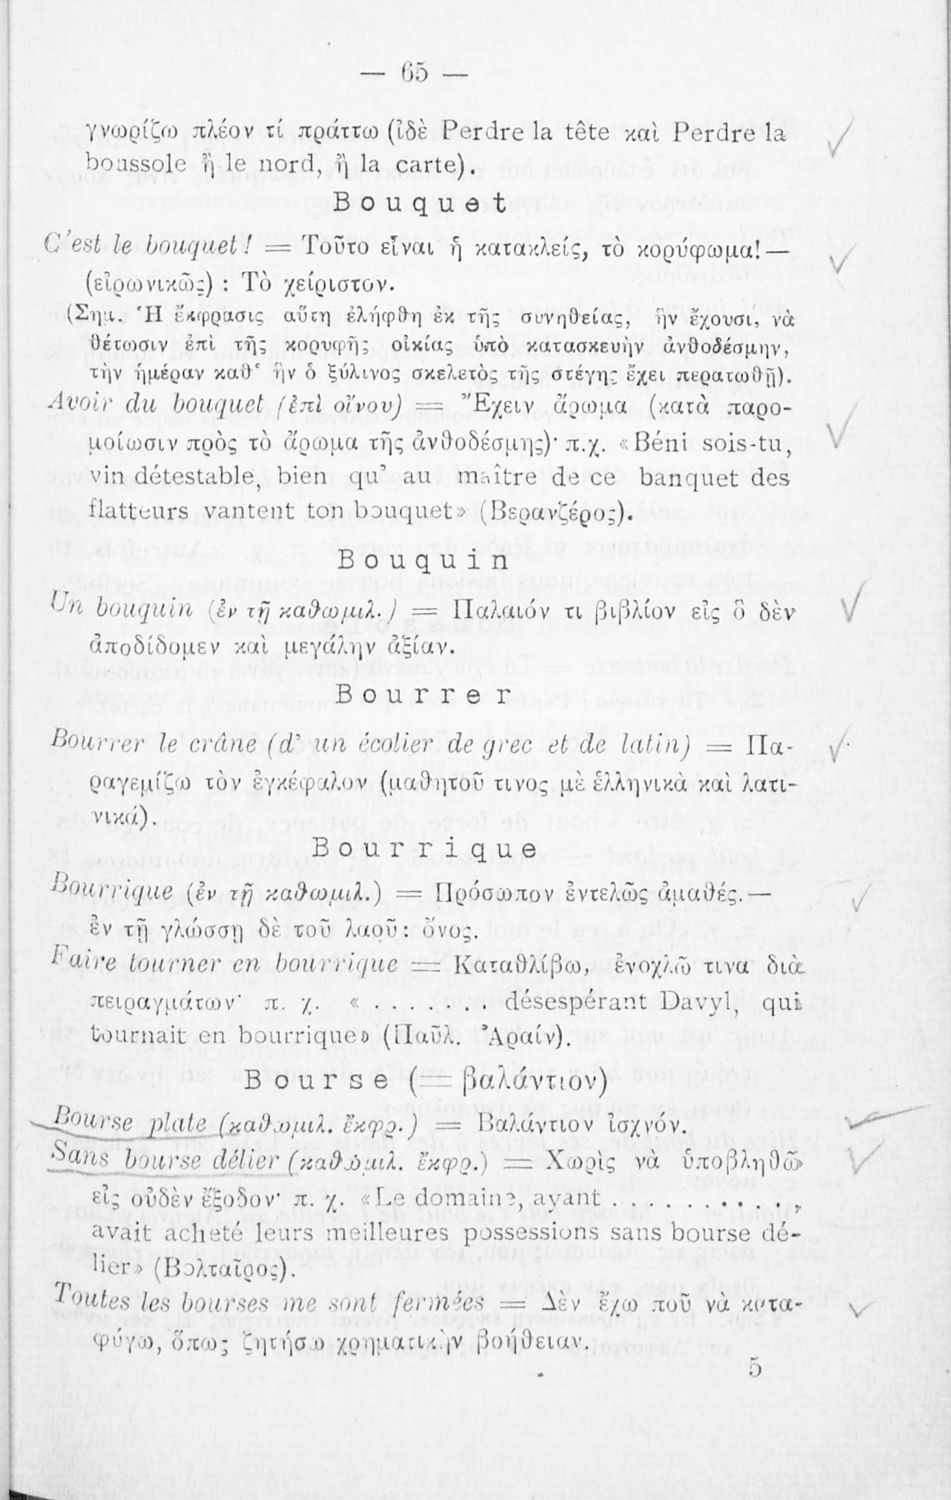 — 65 —
γνωρίζω πλέον τί πράττω (ἰδὲ Perdre la tête καὶ Perdre la
boussole ἢ le nord, ἢ la carte).
Bouquet
C'est le bouquet! = Τοῦτο εἶναι ἡ κατακλείς, τὸ κορύφωμα! —
(εἰρωνικῶς) : Τὸ χείριστον.
(Σημ. Ἡ ἔκφρασις αὕτη ἐλήφθη ἐκ τῆς συνηθείας, ἣν ἔχουσι, νὰ
θέτωσιν ἐπὶ τῆς κορυφῆς οἰκίας ὑπὸ κατασκευὴν ἀνθοδέσμην,
τὴν ἡμέραν καθ' ἣν ὁ ξύλινος σκελετὸς τῆς στέγης ἔχει περατωθῆ).
Avoir du bouquet (ἐπὶ οἴνου) = Ἔχειν ἄρωμα (κατὰ παρο-
μοίωσιν πρὸς τὸ ἄρωμα τῆς ἀνθοδέσμης)· π.χ. «Béni sois-tu,
vin détestable, bien qu' au maître de ce banquet des
flatteurs vantent ton bouquet» (Βερανζέρος).
Bouquin
Un bouquin (ἐν τῇ καθωμιλ.) = Παλαιόν τι βιβλίον εἰς ὃ δὲν
ἀποδίδομεν καὶ μεγάλην ἀξίαν.
Bourrer
Bourrer le crâne (d' un écolier de grec et de latin) = Πα-
ραγεμίζω τὸν ἐγκέφαλον (μαθητοῦ τινος μὲ ἑλληνικὰ καὶ λατι-
νικά).
Bourrique
Bourrique (ἐν τῇ καθωμιλ.) = Πρόσωπον ἐντελῶς ἀμαθές. —
ἐν τῇ γλώσσῃ δὲ τοῦ λαοῦ: ὄνος.
Faire tourner en bourrique = Καταθλίβω, ἐνοχλῶ τινα διὰ
πειραγμάτων· π. χ. « . . . . . . . désespérant Davyl, qui
tournait en bourrique» (Παῦλ. Ἀραίν).
Bourse (= βαλάντιον)
Bourse plate (καθωμιλ. ἔκφρ.) = Βαλάντιον ἰσχνόν.
Sans bourse délier (καθωμιλ. ἔκφρ.) = Χωρὶς νὰ ὑποβληθῶ
εἰς οὐδὲν ἔξοδον· π. χ. «Le domaine, ayant . . . . . . . . . ,
avait acheté leurs meilleures possessions sans bourse dé-
lier» (Βολταῖρος).
Toutes les bourses me sont fermées = Δὲν ἔχω ποῦ νὰ κατα-
φύγω, ὅπως ζητήσω χρηματικὴν βοήθειαν.
5